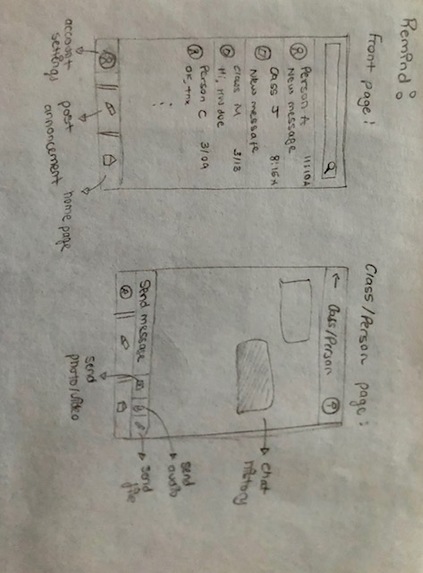 Remind:
Front page:
Person A 11:10A
New message
Class J 8:15A
New message
Class M 3/13
Hi, HW due
Person C 3/09
ok, tnx
account
settings
post
announcement
home page
Class/Person page:
← Class/Person
Send message
send
photo/video
send
audio
send
file
chat
history